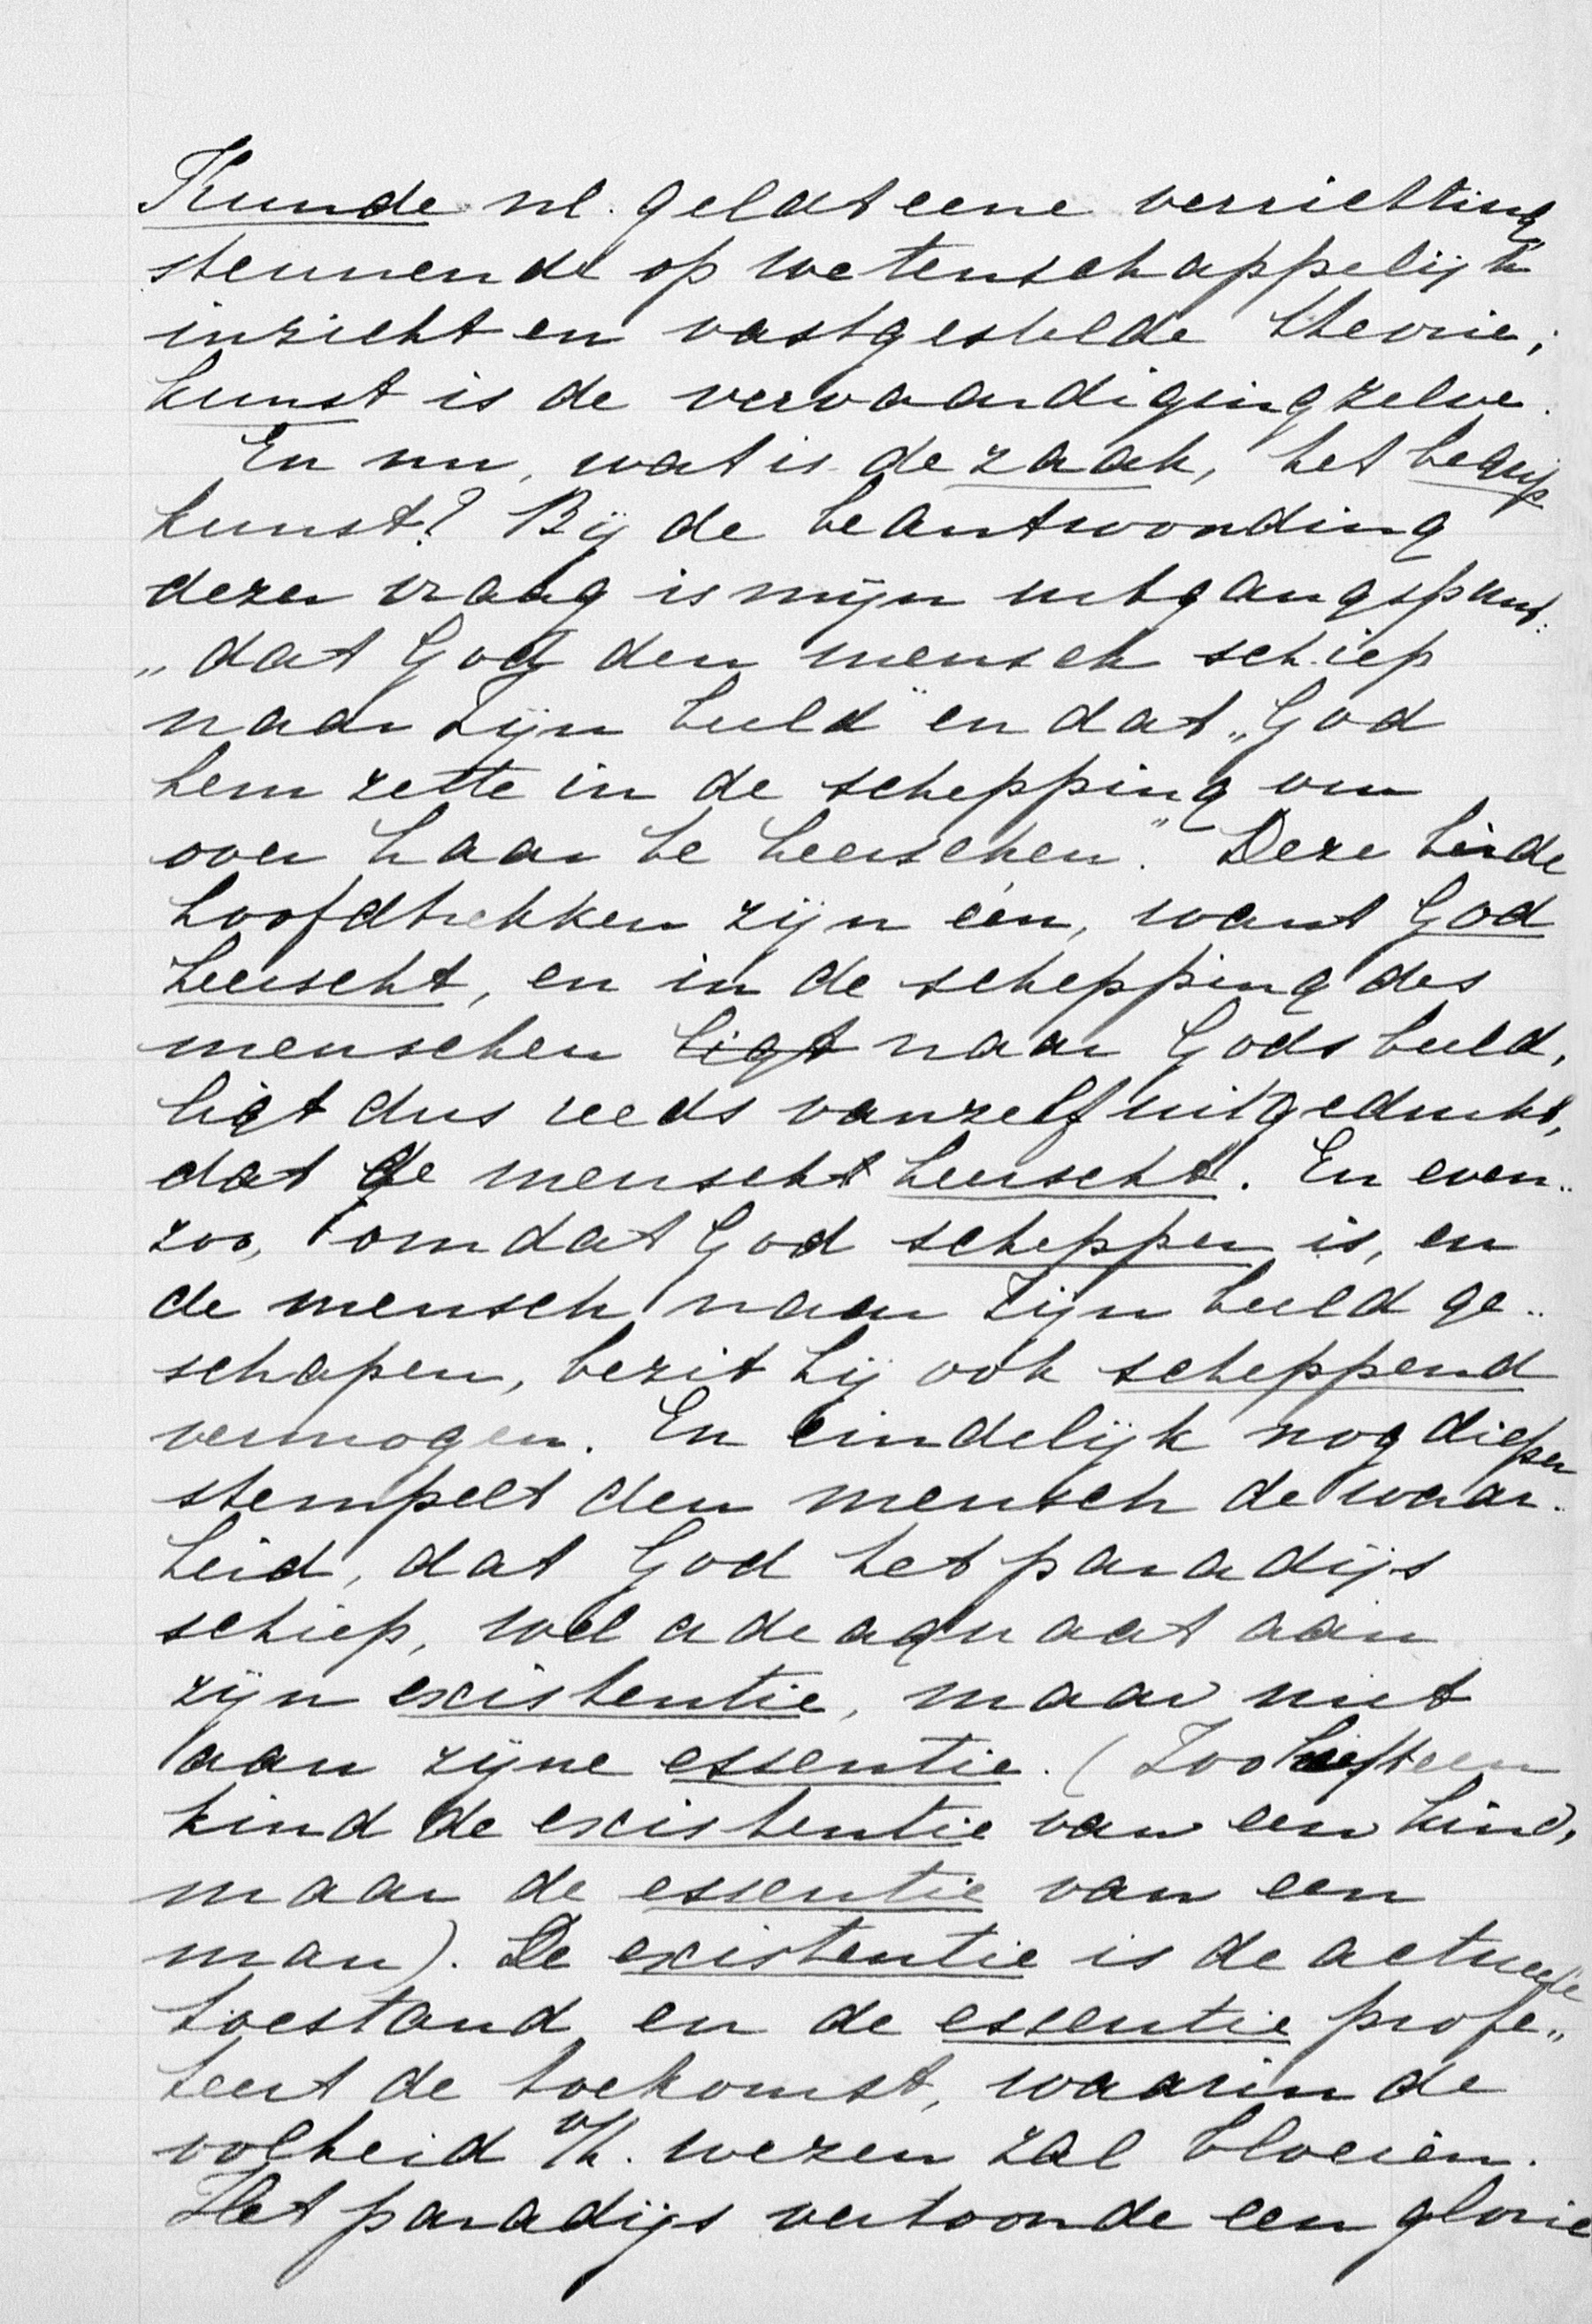 Kunde nl. geldt eene verrichting,
steunende op wetenschappelijk
inzicht en vastgestelde theorie;
kunst is de vervaardiging zelve.
En nu, wat is de zaak, het begrip
kunst? Bij de beantwoording
dezer vraag is mijn uitgangspunt:
„dat God den mensch schiep
naar Zijn beeld" en dat „God
hem zette in de schepping om
over haar te heerschen." Deze beide
hoofdtrekken zijn één, want God
heerscht, en in de schepping des
menschen ligt naar Gods beeld,
ligt dus reeds vanzelf uitgedrukt,
dat de mensch heerscht. En even„
zoo, omdat God schepper is, en
de mensch naar Zijn beeld ge„
schapen, bezit hij ook scheppend
vermogen. En eindelijk nog dieper
stempelt den mensch de waar„
heid, dat God het paradijs
schiep, wel adaequaat aan
zijn existentie, maar niet
aan zijne essentie. (Zoo heeft een
kind de existentie van een kind,
maar de essentie van een
man). De existentie is de actueele
toestand en de essentie profe„
teert de toekomst, waarin de
volheid v/h. wezen zal bloeien.
Het paradijs vertoonde een glorie